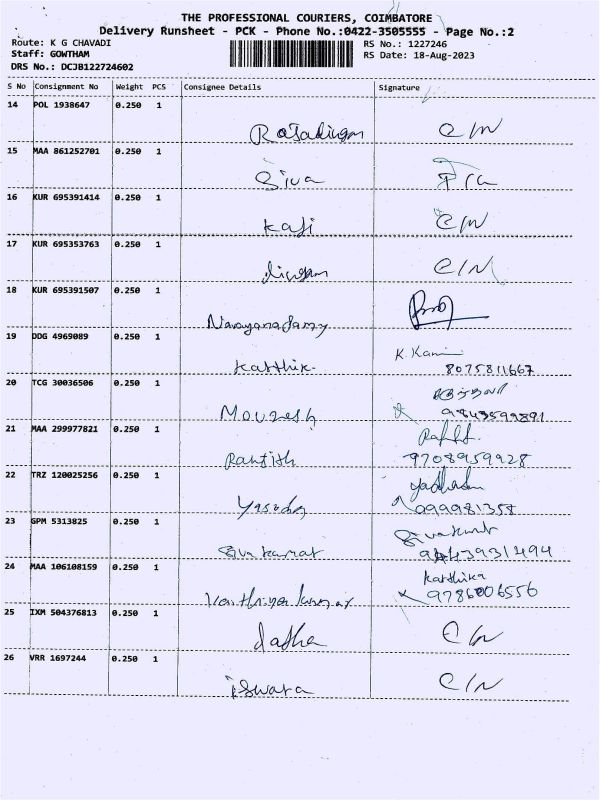 THE PROFESSIONAL COURIERS, COIMBATORE
Delivery Runsheet - PCK - Phone No.:0422-3505555 - Page No.:2
Route: K G CHAVADI
RS No.: 1227246
Staff: GOWTHAM
RS Date: 18-Aug-2023
DRS No.: DCJB122724602
S No Consignment No Weight PCS Consignee Details Signature
14 POL 1938647 0.250 1
C/N
15 MAA 861252701 0.250 1
Siva
16 KUR 695391414 0.250 1
C/N
17 KUR 695353763 0.250 1
C/N
18 KUR 695391507 0.250 1
Narayanasamy
19 DDG 4969089 0.250 1
Karthik 8075811667
20 TCG 30036506 0.250 1
21 MAA 299977821 0.250 1
Ranjith 9708959928
22 TRZ 120025256 0.250 1
23 GPM 5313825 0.250 1
Siva kumar
24 MAA 106108159 0.250 1
Karthika
9786006556
25 IXM 504376813 0.250 1
C/N
26 VRR 1697244 0.250 1
iswara C/N